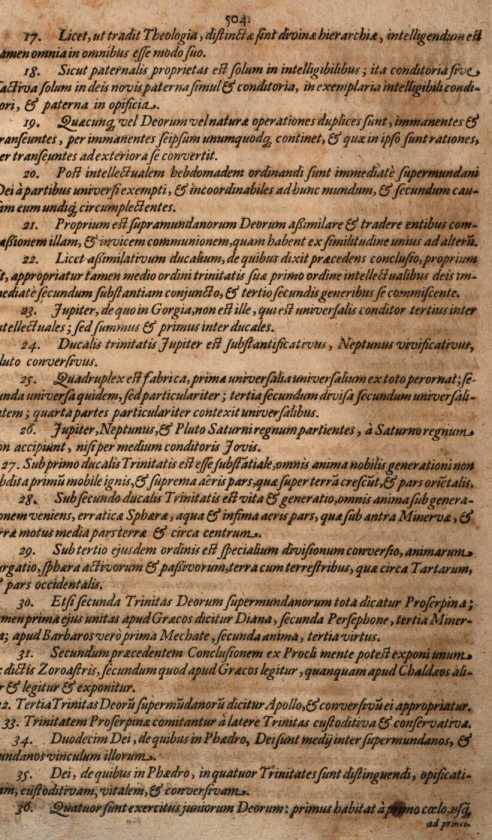 504.
17. Licet, ut tradit Theologia, distinctæ sint divinæ hierarchiæ, intelligendum est
amen omnia in omnibus esse modo suo.
18. Sicut paternalis proprietas est solum in intelligibilibus; ita conditoria sive
factiva solum in deis novis paterna simul & conditoria, in exemplaria intelligibili condi-
ori, & paterna in opificia.
19. Quæcunq; vel Deorum vel naturæ operationes duplices sunt, immanentes &
ranseuntes, per immanentes seipsum unumquodq; continet, & quæ in ipso sunt rationes,
er transeuntes ad exteriora se convertit.
20. Post intellectualem hebdomadem ordinandi sunt immediatè supermundani
Dei à partibus universi exempti, & incoordinabiles ad hunc mundum, & secundum cau-
am eum undiq; circumplectentes.
21. Proprium est supramundanorum Deorum aßimilare & tradere entibus com-
aßionem illam, & invicem communionem, quam habent ex similitudine unius ad alterū.
22. Licet aßimilativum ducalium, de quibus dixit præcedens conclusio, proprium
it, appropriatur tamen medio ordini trinitatis suæ primo ordine intellectualibus deis im-
mediatè secundum substantiam conjuncto, & tertio secundis generibus se commiscente.
23. Jupiter, de quo in Gorgia, non est ille, qui est universalis conditor tertius inter
ntellectuales; sed summus & primus inter ducales.
24. Ducalis trinitatis Jupiter est substantificativus, Neptunus vivificativus,
luto conversivus.
25. Quadruplex est fabrica, prima universalia universalium ex toto perornat; se-
unda universa quidem, sed particulariter; tertia secundum divisa secundum universali-
tem; quarta partes particulariter contexit universalibus.
26. Jupiter, Neptunus, & Pluto Saturni regnum partientes, à Saturno regnum
on accipiunt, nisi per medium conditoris Jovis.
27. Sub primo ducalis Trinitatis est esse substātiale, omnis anima nobilis generationi non
bdita primū mobile ignis, & suprema aëris pars, quæ super terrā crescūt, & pars oriētalis.
28. Sub secundo ducalis Trinitatis est vita & generatio, omnis anima sub genera-
onem veniens, erraticæ Sphæræ, aqua & infima aeris pars, quæ sub antra Minervæ, &
rræ motus media pars terræ & circa centrum.
29. Sub tertio ejusdem ordinis est specialium divisionum conversio, animarum
urgatio, sphæra activorum & paßivorum, terra cum terrestribus, quæ circa Tartarum,
& pars occidentalis.
30. Etsi secunda Trinitas Deorum supermundanorum tota dicatur Proserpina;
men prima ejus unitas apud Græcos dicitur Diana, secunda Persephone, tertia Miner-
a; apud Barbaros verò prima Mechate, secunda anima, tertia virtus.
31. Secundum præcedentem Conclusionem ex Procli mente potest exponi unum
x dictis Zoroastris, secundum quod apud Græcos legitur, quanquam apud Chaldæos ali-
r & legitur & exponitur.
32. Tertia Trinitas Deorū supermūdanorū dicitur Apollo, & conversivū ei appropriatur.
33. Trinitatem Proserpinæ comitantur à latere Trinitas custoditiva & conservativa.
34. Duodecim Dei, de quibus in Phædro, Dei sunt medij inter supermundanos, &
undanos vinculum illorum.
35. Dei, de quibus in Phædro, in quatuor Trinitates sunt distinguendi, opificati-
am, custoditivam, vitalem, & conversivam.
36. Quatuor sunt exercitus juniorum Deorum: primus habitat à primo cœlo, usq;
ad princi-